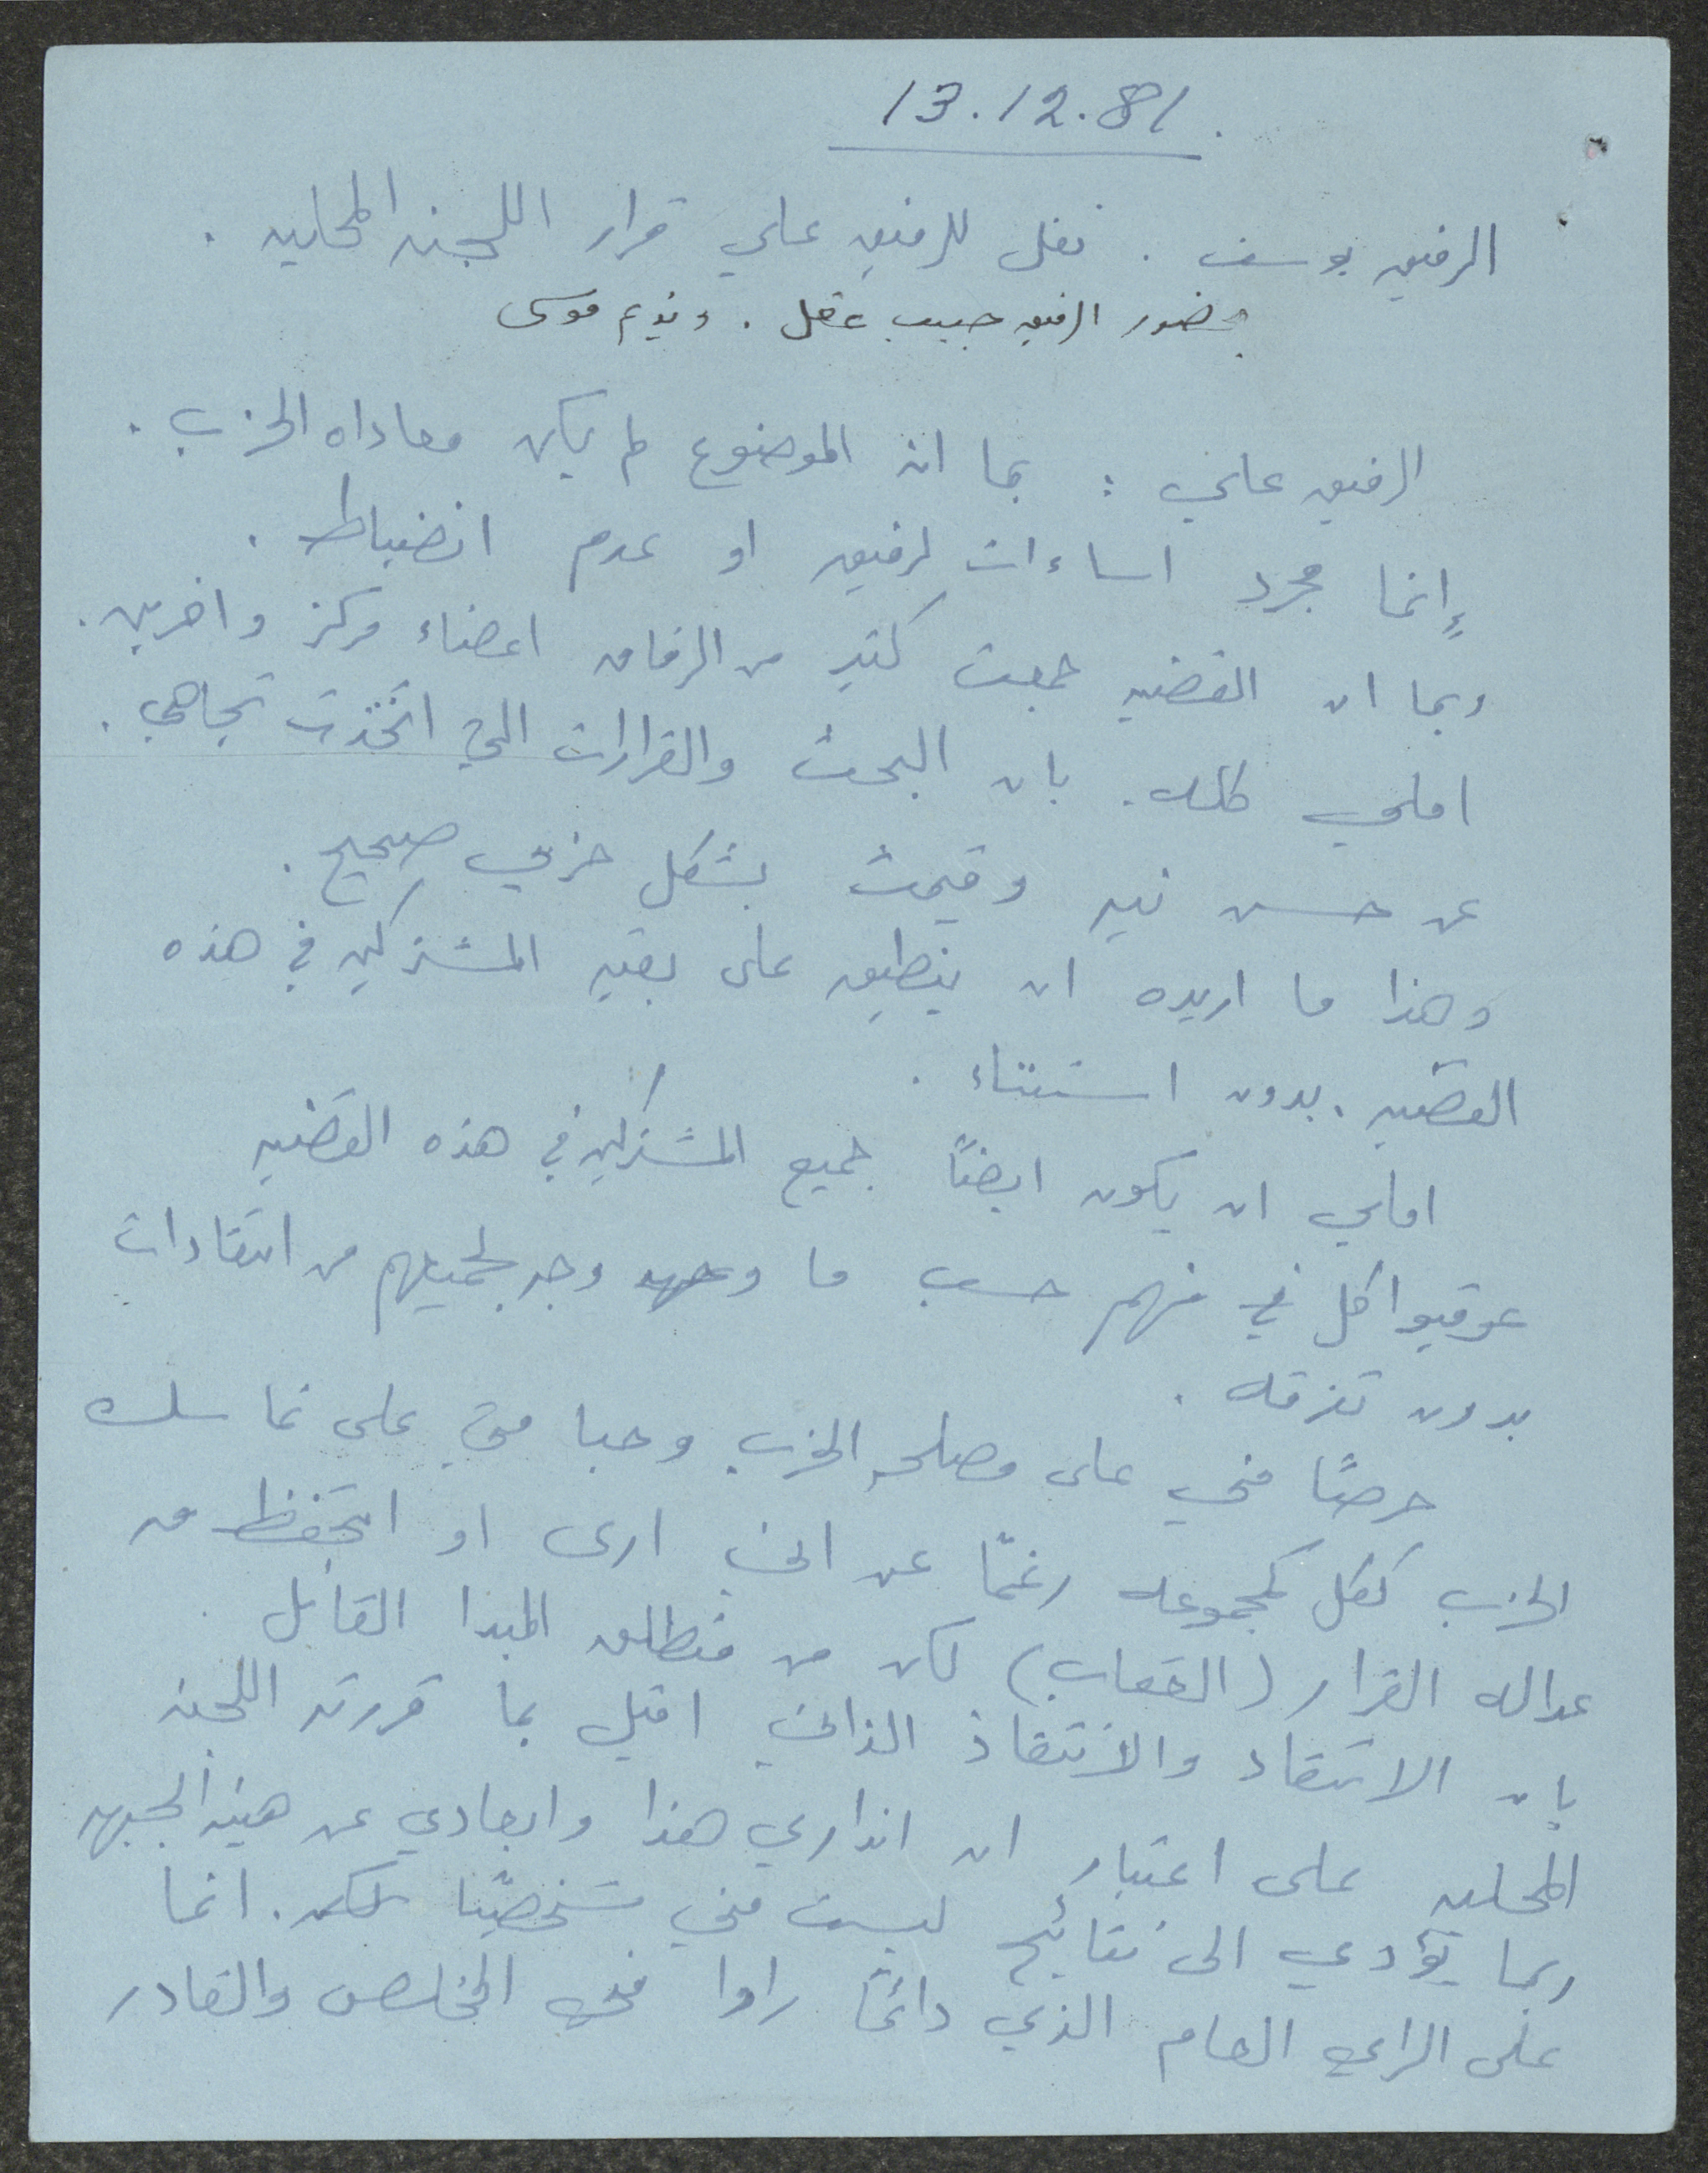 13.12.81.
الرفيق يوسف . نقل للرفيق علي قرار اللجنه المحليه .
بحضور الرفيق حبيب عقل . ونديم موسى
الرفيق علي : بما انه الموضوع لم يكن معاداه الحزب .
إنما مجرد اساءات لرفيق او عدم انضباط .
وبما ان القضيه جمعت كثير من الرفاق اعضاء مركز واخرين .
املي كله . بان البحث والقرارات التي اتخذت تجاهي .
عن حسن نيه وقيمت بشكل حزبي صحيح .
وهذا ما اريده ان ينطبق على بقيه المشتركين في هذه
القضيه . بدون استثناء .
املي ان يكون ايضًا جميع المشتركين في هذه القضيه
عوقبوا كل في منهم حسب ما وجه لجميعهم من انتقادات
بدون تفرقه .
حرصًا مني على مصلحه الحزب وحبا مني على تماسك
الحزب ككل كمجموعه رغمًا عن انني ارى او اتحفظ من
عداله القرار (العقاب) لكن من منطلق المبدا القائل
بان الانتقاد والانتقاذ الذاتي اقبل بما قررته اللجنه
المحليه على اعتبار ان انذاري هذا وابعادي عن هيئه الجبهه
ربما يؤدي الى نتائج ليست مني شخصيًا . انما
على الراي العام الذي دائمًا راوا فيي المخلص والقادر